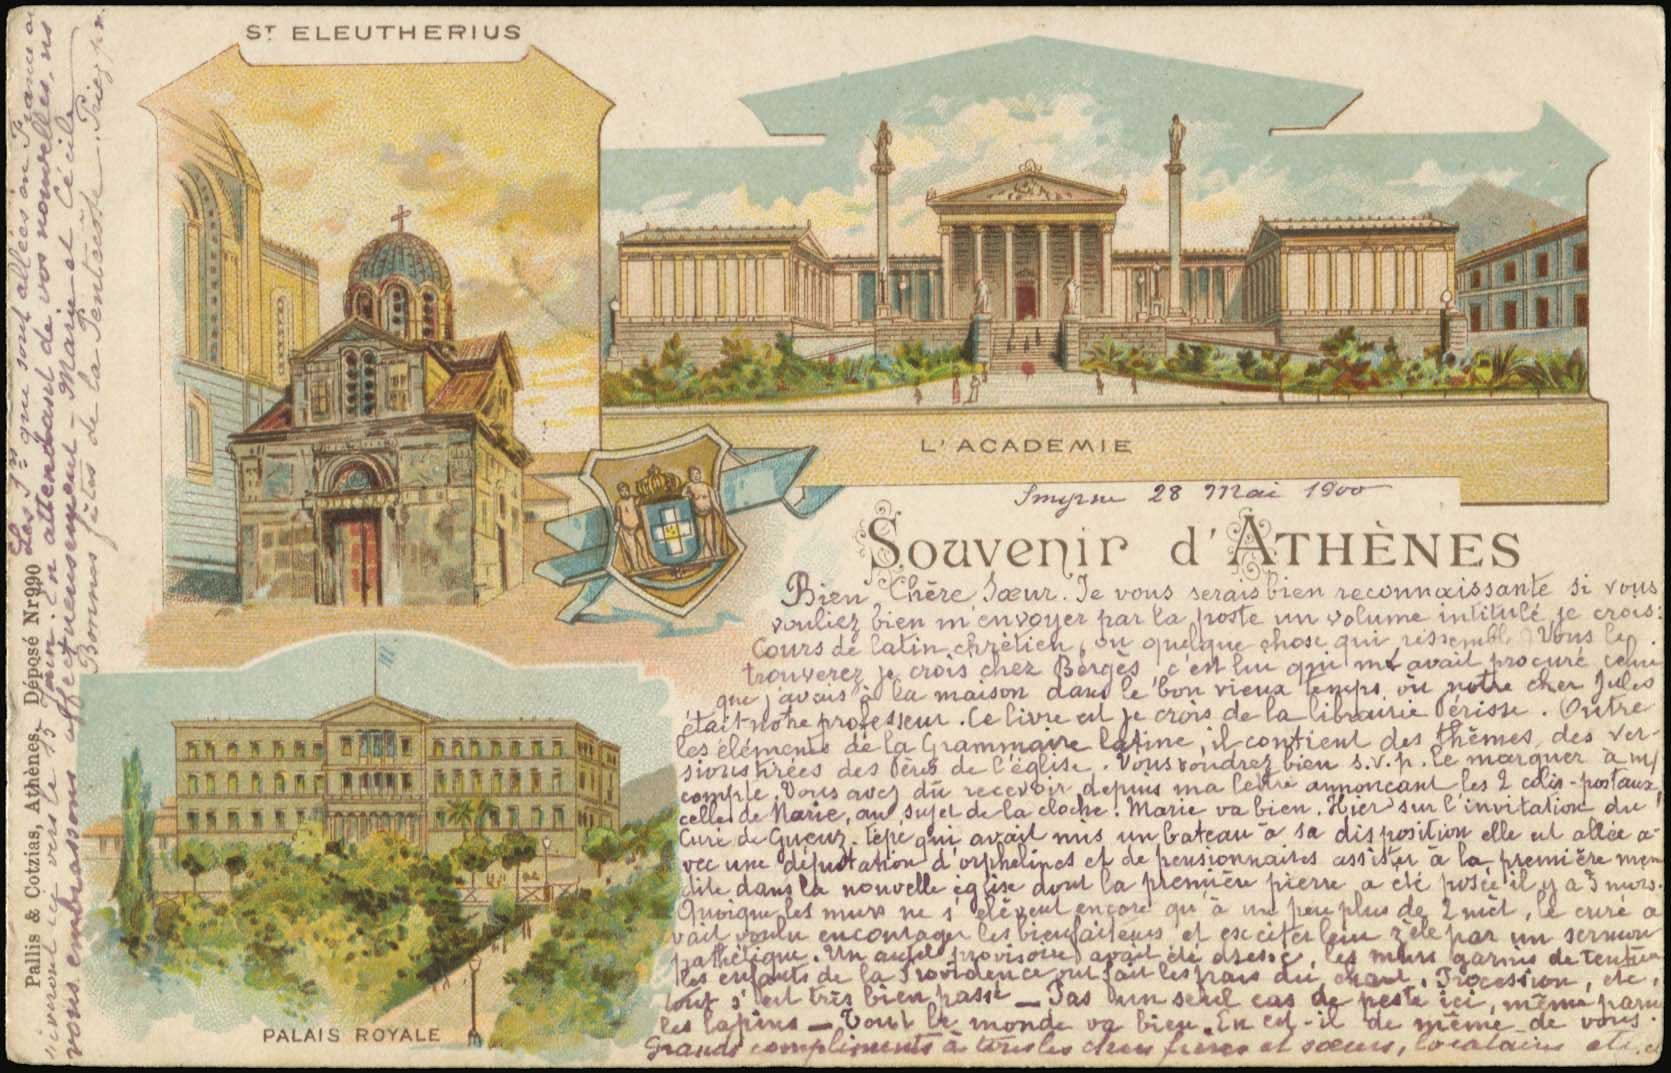 ST ELEUTHERIUS
L'ACADEMIE
Smyrne 28 Mai 1900
Souvenir d'ATHÈNES
Bien Chère Sœur. Je vous serais bien reconnaissante si vous
vouliez bien m'envoyer par la poste un volume intitulé, je crois:
Cours de latin chrétien, ou quelque chose qui ressemble. Vous le
trouverez je crois chez Bergès, c'est lui qui m'avait procuré celui
que j'avais à la maison dans le bon vieux temps, où notre cher Jules
était notre professeur. Ce livre est je crois de la librairie Périsse. Outre
les éléments de la Grammaire latine, il contient des thèmes, des ver-
sions tirées des Pères de l'église. Vous voudrez bien s.v.p. le marquer à mon
compte. Vous avez dû recevoir depuis ma lettre annonçant les 2 colis-postaux,
celle de Marie, au sujet de la cloche. Marie va bien. Hier sur l'invitation du
Curé de Gueuz-tépé qui avait mis un bateau à sa disposition elle est allée a-
vec une députation d'orphelines et de pensionnaires assister à la première messe
dite dans la nouvelle église dont la première pierre a été posée il y a 3 mois.
Quoique les murs ne s'élèvent encore qu'à un peu plus de 2 mèt, le curé a
vait voulu encourager les bienfaiteurs et exciter leur zèle par un sermon
pathétique. Un autel provisoire avait été dressé, les murs garnis de tentures
les enfants de la Providence ont fait les frais du chant, Procession, etc,
tout s'est très bien passé _ Pas un seul cas de peste ici, même parmi
les lapins _ Tout le monde va bien. En est-il de même de vous.
Grands compliments à tous les chers frères et sœurs, locataires etc. et
PALAIS ROYALE
Pallis & Cotzias, Athènes. Déposé Nr 990
Les Srs que sont allées en France
seront ici vers le 15 Juin. En attendant de vos nouvelles, ns
vous embrassons affectueusement - Marie et Cécile
Bonnes fêtes de la Pentecôte. Priez pr n.